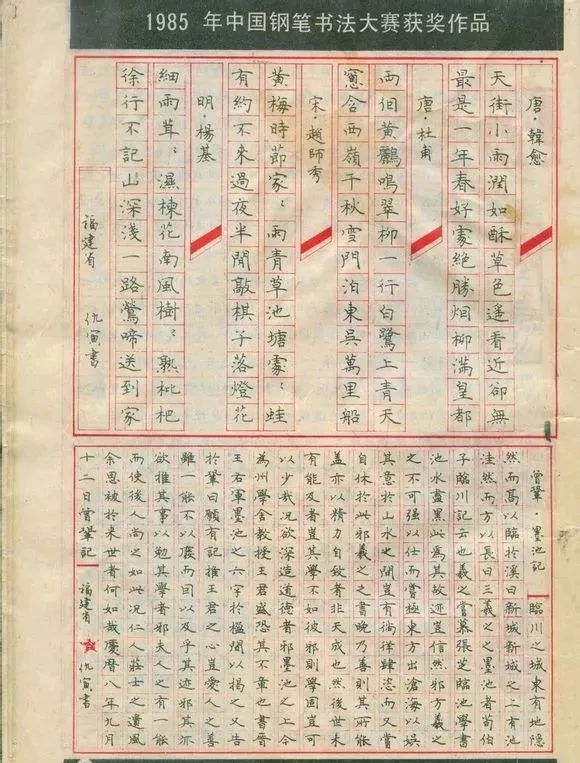 1985 年中国钢笔书法大赛获奖作品
唐·韓愈
天街小雨潤如酥草色遥看近卻無
最是一年春好處絶勝烟柳滿皇都
唐·杜甫
两個黄鸝鳴翠柳一行白鷺上青天
窻含西嶺千秋雪門泊東吳萬里船
宋·趙師秀
黄梅時節家：雨青草池塘處：蛙
有約不来過夜半閒敲棋子落燈花
明·楊基
細雨茸：濕楝花南風樹：熟枇杷
徐行不記山深淺一路鶯啼送到家
福建省 仇寅書
曾鞏·墨池記 臨川之城東有地隱
然而高以臨於溪曰新城新城之上有池
洼然而方以長曰王羲之之墨池者荀伯
子臨川記云也羲之嘗慕張芝臨池學書
池水盡黑此爲其故迹豈信然邪方羲之
之不可强以仕而嘗極東方出滄海以娱
其意於山水之間豈有徜徉肆恣而又嘗
自休於此邪羲之之書晚乃善則其所能
盖亦以精力自致者非天成也然後世未
有能及者豈其學不如彼邪則學固豈可
以少哉况欲深造道德者邪墨池之上今
爲州學舍教授王君盛恐其不章也書晉
王右軍墨池之六字於楹間以揭之又告
於鞏曰願有記推王君之心豈愛人之善
雖一能不以廢而因以及乎其迹邪其亦
欲推其事以勉其學者邪夫人之有一能
而使後人尚之如此况仁人莊士之遺風
余思被於来世者何如哉慶曆八年九月
十二日曾鞏記 福建省 仇寅書